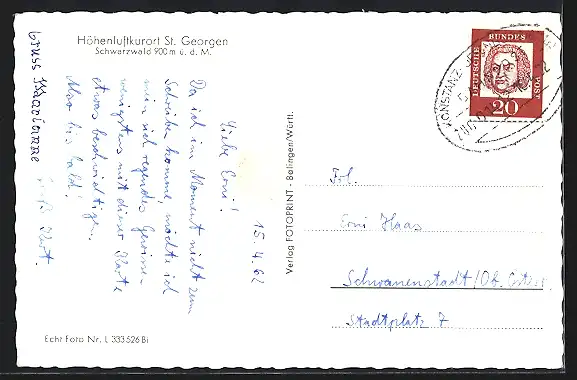 Höhenluftkurort St. Georgen
Schwarzwald 900 m ü. d. M.
15.4.62
Liebe Erni!
Da ich im Moment nicht zum
Schreiben komme, möchte ich
mein sich regendes Gewissen
wenigstens mit dieser Karte
etwas beschwichtigen.
Also bis bald!
Kurt.
Gruss Marianne
Echt Foto Nr. L 333 526 Bi
Verlag FOTOPRINT - Balingen/Württ.
DEUTSCHE BUNDES POST
20
KONSTANZ
Frl.
Erni Haas
Schwanenstadt/Ob. Österr.
Stadtplatz 7